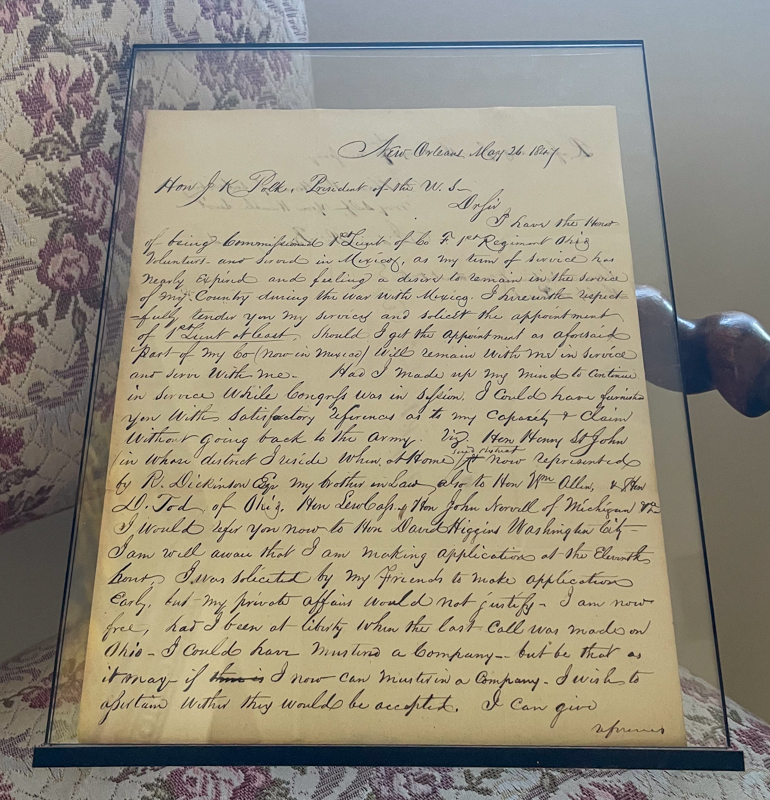 New Orleans, May 26. 1847
Hon J K Polk, President of the U. S—
Dr Sir
I have the Honor
of being Commissioned 1st Lieut of Co F. 1st Regiment Ohio
Volunteers and served in Mexico, as my term of service has
nearly Expired and feeling a desire to remain in the service
of my Country during the War with Mexico. I herewith respect
-fully tender you my services and solicit the appointment
of 1st Lieut at least, Should I get the appointment as aforesaid
Part of my Co (now in Mexico) Will remain With me in service
and serve With me - Had I made up my mind to Continue
in service While Congress was in session, I Could have furnished
you With Satisfactory references as to my Capacity & Claim
Without going back to the Army. Viz. Hon Henry St John
(in whose district I reside When at Home) now represented
by R. Dickinson Esqr my brother in Law also to Hon Wm Allen, & Hon
D. Tod, of Ohio, Hon Lew Cass & Hon John Norvell of Michigan &c
I would refer you now to Hon David Higgins Washington City—
I am well aware that I am making application at the Eleventh
hour, I was solicited by my Friends to make application
Early, but my private affairs would not justify - I am now
free, had I been at liberty when the last Call was made on
Ohio - I Could have Mustered a Company - but be that as
it may - if I now can muster in a Company - I wish to
assertain Wither they would be accepted. I Can give